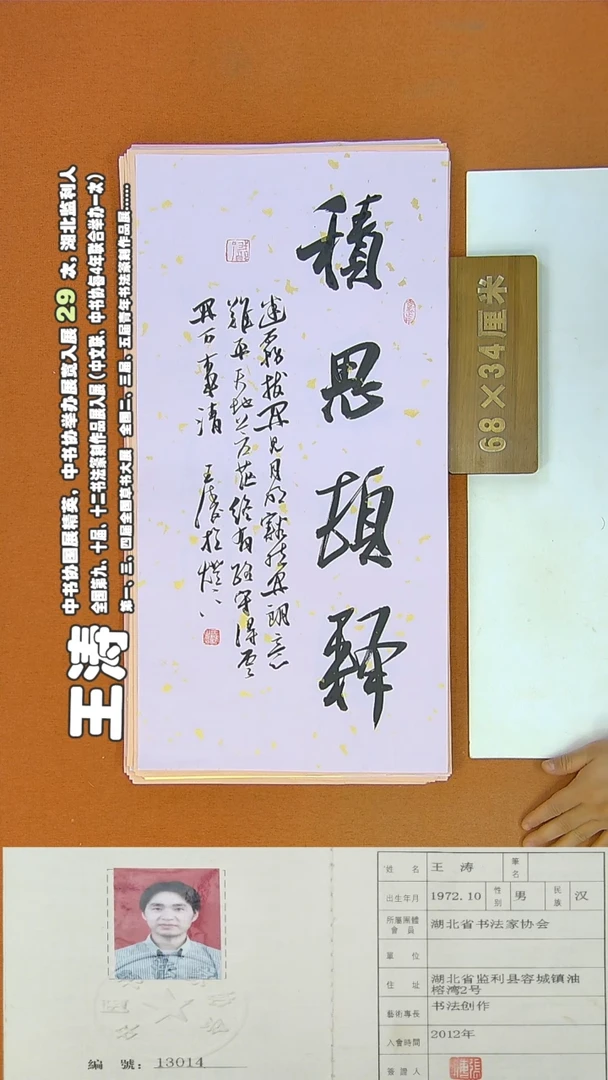 王涛
中书协国展精英，中书协举办展赛入展 29 次，湖北监利人
全国第九、十届、十二书法篆刻作品展入展（中文联、中书协每4年联合举办一次）
第一、三、四届全国草书大展 全国二、三届、五届青年书法篆刻作品展......
積思頓釋
迷霧拔开见月明豁然开朗意
難平天地茫終有路守得雲
开百事清 王涛
68×34厘米
編 號：13014
姓 名 王 涛 筆名
出生年月 1972.10 性别 男 民族 汉
所屬團體會員 湖北省书法家协会
單 位
住 址 湖北省监利县容城镇油榕湾2号
藝術專長 书法创作
入會時間 2012年
簽證人